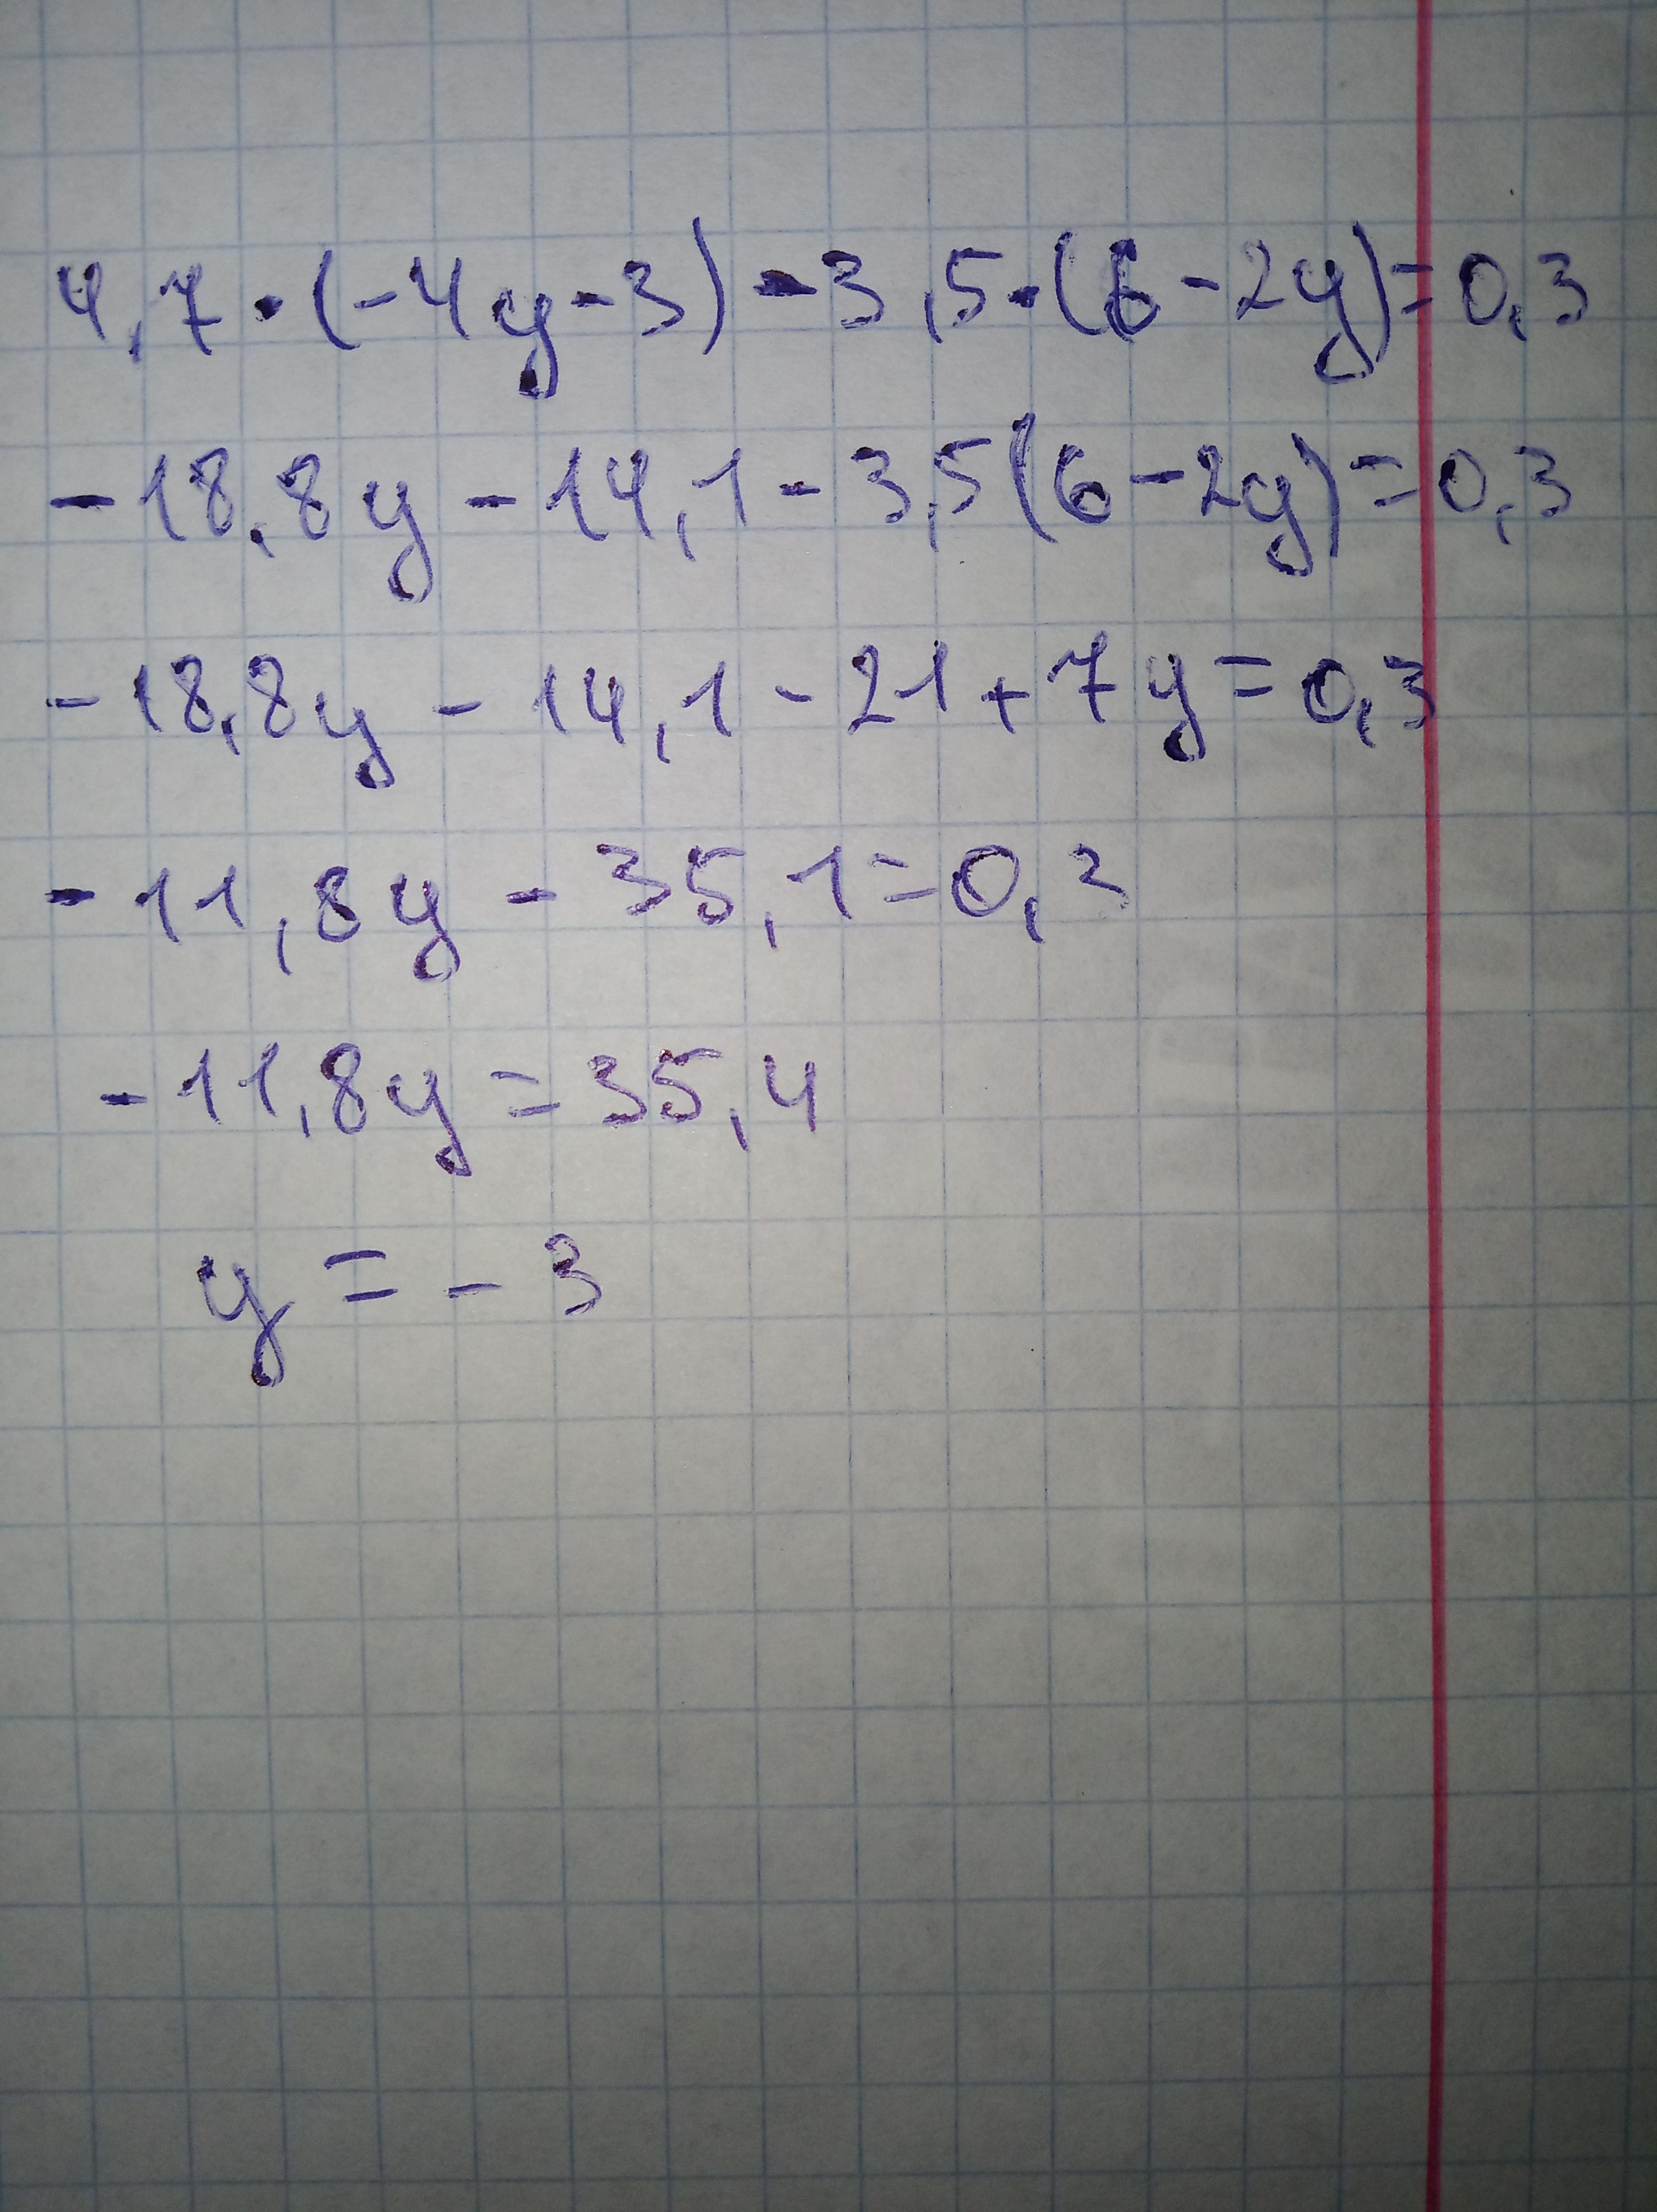 4,7·(-4y-3)-3,5·(6-2y)=0,3
-18,8y-14,1-3,5(6-2y)=0,3
-18,8y-14,1-21+7y=0,3
-11,8y-35,1=0,3
-11,8y=35,4
y=-3